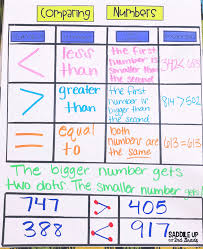 Comparing Numbers
<
less
than
the first
number is
smaller than
the second
>
greater
than
the first
number is
bigger than
the second
814 > 502
=
equal
to
both
numbers
are the same
613 = 613
The bigger number gets
two dots. The smaller number gets
747 > 405
388 < 917
SADDLE UP
for 2nd Grade